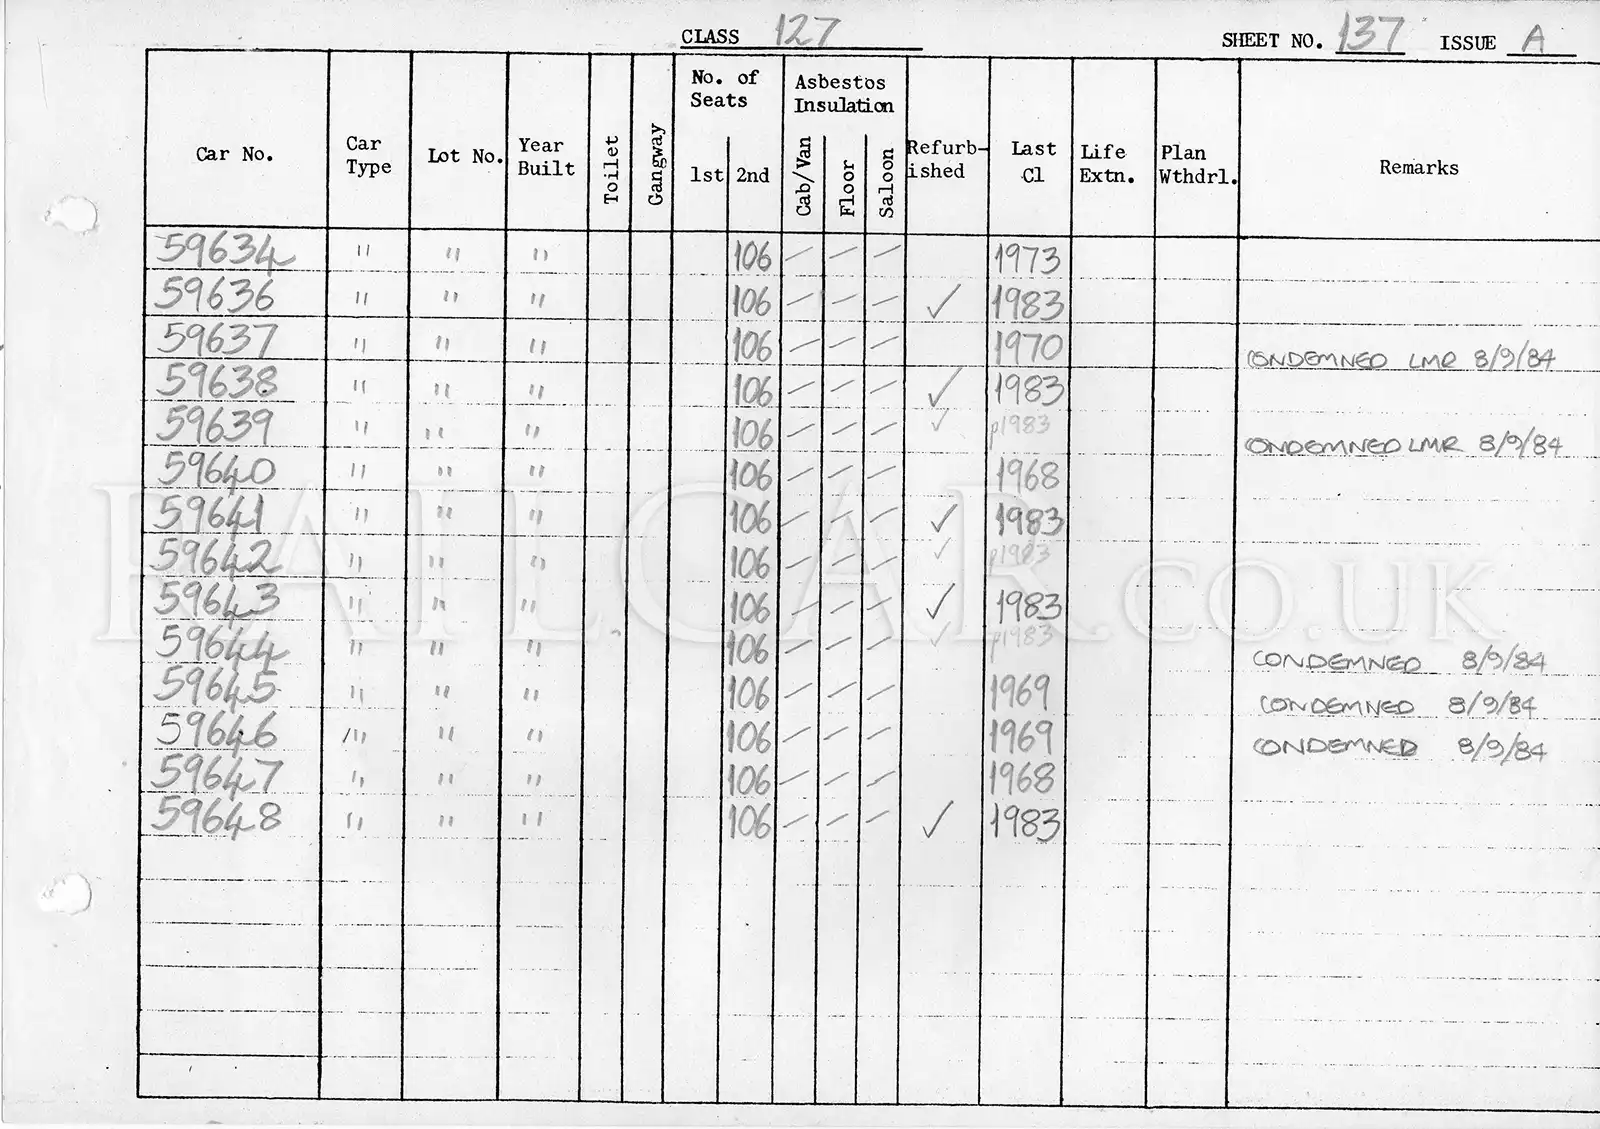 CLASS 127 SHEET NO. 137 ISSUE A
Car No. Car Type Lot No. Year Built Toilet Gangway No. of Seats 1st 2nd Asbestos Insulation Cab/Van Floor Saloon Refurb-ished Last Cl Life Extn. Plan Wthdrl. Remarks
59634 " " " 106 / / / 1973
59636 " " " 106 / / / ✓ 1983
59637 " " " 106 / / / 1970 CONDEMNED LMR 8/9/84
59638 " " " 106 / / / ✓ 1983
59639 " " " 106 / / / ✓ p1983 CONDEMNED LMR 8/9/84
59640 " " " 106 / / / 1968
59641 " " " 106 / / / ✓ 1983
59642 " " " 106 / / / ✓ p1983
59643 " " " 106 / / / ✓ 1983
59644 " " " 106 / / / ✓ p1983 CONDEMNED 8/9/84
59645 " " " 106 / / / 1969 CONDEMNED 8/9/84
59646 " " " 106 / / / 1969 CONDEMNED 8/9/84
59647 " " " 106 / / / 1968
59648 " " " 106 / / / ✓ 1983
RAILCAR.CO.UK